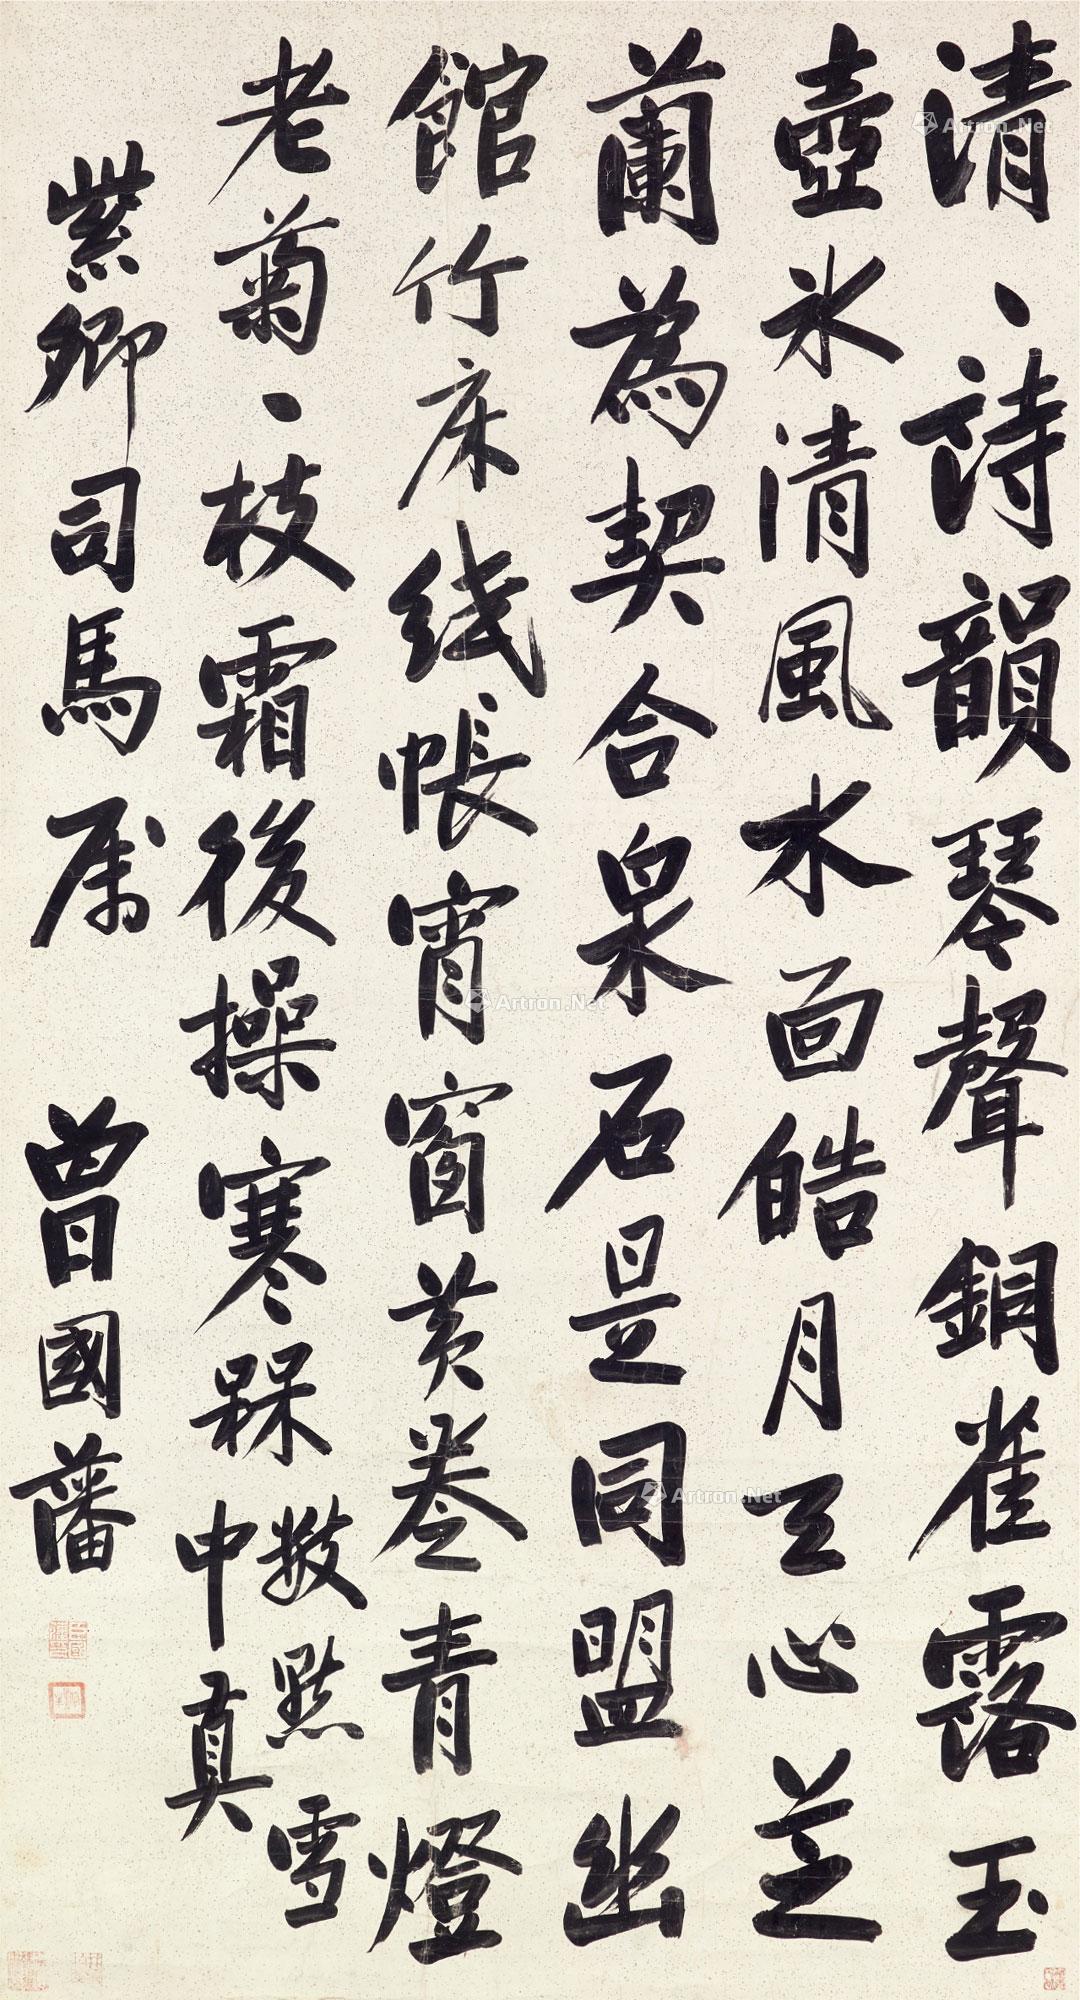 清、詩韻琴聲銅雀露玉
壺冰清風水面皓月天心芝
蘭為契合泉石是同盟幽
館竹床綫帳宵窗黃卷青燈
老菊、枝霜後操寒槑數點雪
中真
紫卿司馬属 曾國藩
Artron.Net
Artron.Net
Artron.Net